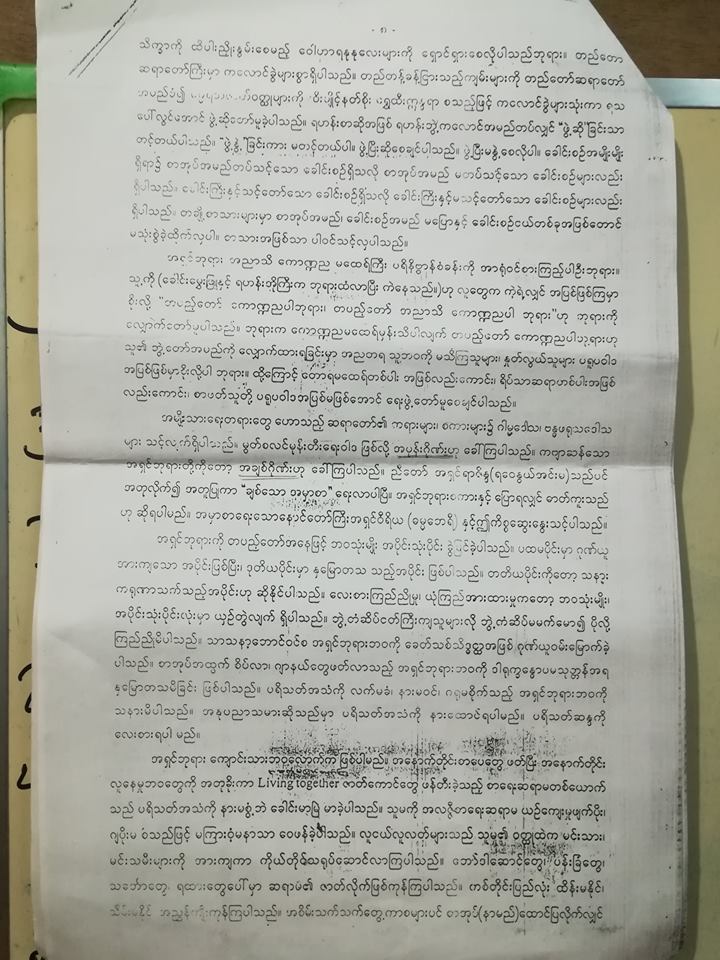 - ၈ -
သိက္ခာကို ထိပါးညှိုးနွမ်းစေမည့် ဝေါဟာရနုနုလေးများကို ရှောင်ရှားစေလိုပါသည်ဘုရား။ တည်တော
ဆရာတော်ကြီးမှာ ကလောင်ခွဲများစွာရှိပါသည်။ တည်တန့်ခန့်ငြားသည့်ကျမ်းများကို တည်တော်ဆရာတော်
အမည်ခံ၍ ဝတ္ထုများကို စသည်ဖြင့် ကလောင်ခွဲများသုံးကာ
ပေါ်လွင်အောင် ဖွဲ့ဆိုတော်မူခဲ့ပါသည်။ ရဟန်းစာဆိုအဖြစ် ရဟန်းဘွဲ့ကလောင်အမည်တပ်လျှင် "ဖွဲ့ဆို"ခြင်းသာ
တင့်တယ်ပါသည်။ "ဖွဲ့နွဲ့"ခြင်းကား မတင့်တယ်ပါ။ ဖွဲ့ပြီးဆိုစေချင်ပါသည်။ ဖွဲ့ပြီးမနွဲ့စေလိုပါ။ ခေါင်းစဉ်အမျိုးမျိုး
ရှိရာ၌ စာအုပ်အမည်တပ်သင့်သော ခေါင်းစဉ်ရှိသလို စာအုပ်အမည် မတပ်သင့်သော ခေါင်းစဉ်များလည်း
ရှိပါသည်။ ခေါင်းကြီးနှင့်သင့်တော်သော ခေါင်းစဉ်ရှိသလို ခေါင်းကြီးနှင့်မသင့်တော်သော ခေါင်းစဉ်များလည်း
ရှိပါသည်။ တချို့စာသားများမှာ စာအုပ်အမည်၊ ခေါင်းစဉ်အမည် မပြောနှင့် ခေါင်းစဉ်ငယ်တစ်ခုအဖြစ်တောင်
မသုံးစွဲခဲ့ထိုက်လှပါ။ စာသားအဖြစ်သာ ပါဝင်သင့်လှပါသည်။
အရှင်ဘုရား အညာသိ ကောဏ္ဍည မထေရ်ကြီး ပရိနိဗ္ဗာန်စံခန်းကို အာရုံဝင်စားကြည့်ပါဦးဘုရား။
သူ့ကို (ခေါင်းမွေးဖြူနှင့် ရဟန်းအိုကြီးက ဘုရားထံလာပြီး ကဲနေသည်။)ဟု လူတွေက ကဲ့ရဲ့လျှင် အပြစ်ဖြစ်ကြမှာ
စိုးလို့ "တပည့်တော် ကောဏ္ဍညပါဘုရား၊ တပည့်တော် အညာသိ ကောဏ္ဍညပါ ဘုရား"ဟု ဘုရားကို
လျှောက်တော်မူပါသည်။ ဘုရားက ကောဏ္ဍညမထေရ်မှန်းသိပါလျက် တပည့်တော် ကောဏ္ဍညပါဘုရားဟု
သူ၏ ဘွဲ့တော်အမည်ကို လျှောက်ထားရခြင်းမှာ အညတရ သူ့ဘဝကို မသိကြသူများ၊ နှုတ်လွယ်သူများ ပရူပဝါဒ
အပြစ်ဖြစ်မှာစိုးလို့ပါ ဘုရား။ ထို့ကြောင့် တောရမထေရ်တစ်ပါး အဖြစ်လည်းကောင်း၊ ရိပ်သာဆရာတစ်ပါးအဖြစ်
လည်းကောင်း၊ စာဖတ်သူတို့ ပရူပဝါဒအပြစ်မဖြစ်အောင် ရေးဖွဲ့တော်မူစေချင်ပါသည်။
အမျိုးသားရေးတရားတွေ ဟောသည့် ဆရာတော်၏ ကရားများ၊ စကားများ၌ ဂါမ္မဒေါသ၊ ဗန္ဓဖရုသဒေါသ
များ သင့်လျက်ရှိပါသည်။ မွတ်စလင်မုန်းတီးရေးဝါဒ ဖြစ်လို့ အမုန်းဂိုဏ်းဟု ခေါ်ကြပါသည်။ ကဗျာဆန်သော
အရှင်ဘုရားတို့ကိုတော့ အချစ်ဂိုဏ်းဟု ခေါ်ကြပါသည်။ ညီတော် အရှင်ရာဇိန္ဒ(ရဝေနွယ်အင်းမ)သည်ပင်
အတုလိုက်၍ အတူပြုကာ "ချစ်သော အမှာစာ" ရေးလာပါပြီ။ အရှင်ဘုရားစကားနှင့် ပြောရလျှင် ဓာတ်ကူးသည်
ဟု ဆိုရပါမည်။ အမှာစာရေးသောနောင်တော်ကြီးအရှင်ဝီရိယ (ဓမ္မဘေရီ) နှင့်ဤကိစ္စဆွေးနွေးသင့်ပါသည်။
အရှင်ဘုရားကို တပည့်တော်အနေဖြင့် ဘဝသုံးမျိုး အပိုင်းသုံးပိုင်း ခွဲမြင်ခဲ့ပါသည်။ ပထမပိုင်းမှာ ဂုဏ်ယူ
အားကျသော အပိုင်းဖြစ်ပြီး၊ ဒုတိယပိုင်းမှာ နှမြောတသ သည့်အပိုင်း ဖြစ်ပါသည်။ တတိယပိုင်းကိုတော့ သနား
ကရုဏာသက်သည့်အပိုင်းဟု ဆိုနိုင်ပါသည်။ လေးစားကြည်ညိုမှု၊ ယုံကြည်အားထားမှုကတော့ ဘဝသုံးမျိုး၊
အပိုင်းသုံးပိုင်းလုံးမှာ ယှဉ်တွဲလျက် ရှိပါသည်။ ဘွဲ့တံဆိပ်ငတ်ကြီးကျသူများလို ဘွဲ့တံဆိပ်မမက်မော၍ ပိုလို့
ကြည်ညိုမိပါသည်။ သာသနာ့ဘောင်ဝင်စ အရှင်ဘုရားဘဝကို ခေတ်သစ်သိဒ္ဓတ္ထအဖြစ် ဂုဏ်ယူဝမ်းမြောက်ခဲ့
ပါသည်။ စာအုပ်အထွက် စိပ်လာ၊ ဂျာနယ်တွေဖတ်လာသည့် အရှင်ဘုရားဘဝကို ဒါရုက္ခန္ဓောပမသုတ္တန်အရ
နှမြောတသမိခြင်း ဖြစ်ပါသည်။ ပရိသတ်အသံကို လက်မခံ၊ နားမဝင်၊ ဂရုမစိုက်သည့် အရှင်ဘုရားဘဝကို
သနားမိပါသည်။ အနုပညာသမားဆိုသည်မှာ ပရိသတ်အသံကို နားထောင်ရပါမည်။ ပရိသတ်ဆန္ဒကို
လေးစားရပါ မည်။
အရှင်ဘုရား ကျောင်းသားဘဝလောက်က ဖြစ်ပါမည်။ အနောက်တိုင်းစာပေတွေ ဖတ်ပြီး အနောက်တိုင်း
လူနေမှုဘဝတွေကို အတုခိုးကာ Living together ဇာတ်ကောင်တွေ ဖန်တီးခဲ့သည့် စာရေးဆရာမတစ်ယောက်
သည် ပရိသတ်အသံကို နားမစွံ့ဘဲ ခေါင်းမာမြဲ မာခဲ့ပါသည်။ သူမကို အလဇ္ဇီစာရေးဆရာမ ယဉ်ကျေးမှုဖျက်ပိုး၊
ဂျပိုးမ စသည်ဖြင့် မကြားဝံ့မနာသာ ဝေဖန်ခဲ့ပါသည်။ လူငယ်လူလတ်များသည် သူမ၏ ဝတ္ထုထဲက မင်းသား၊
မင်းသမီးများကို အားကျကာ ကိုယ်တိုင်သရုပ်ဆောင်လာကြပါသည်။ ဘော်ဒါဆောင်တွေ၊ ပန်းခြံတွေ၊
သင်္ဘောတွေ၊ ရထားတွေပေါ်မှာ ဆရာမ၏ ဇာတ်လိုက်ဖြစ်ကုန်ကြပါသည်။ ကစ်တိုင်းပြည်လုံး ထိန်းမနိုင်၊
သိမ်းမနိုင် အညွန့်ကျိုးကုန်ကြပါသည်။ အစိမ်းသက်သက်တွေ့ကာစများပင် စာအုပ်(နာမည်)ထောင်ပြလိုက်လျှင်